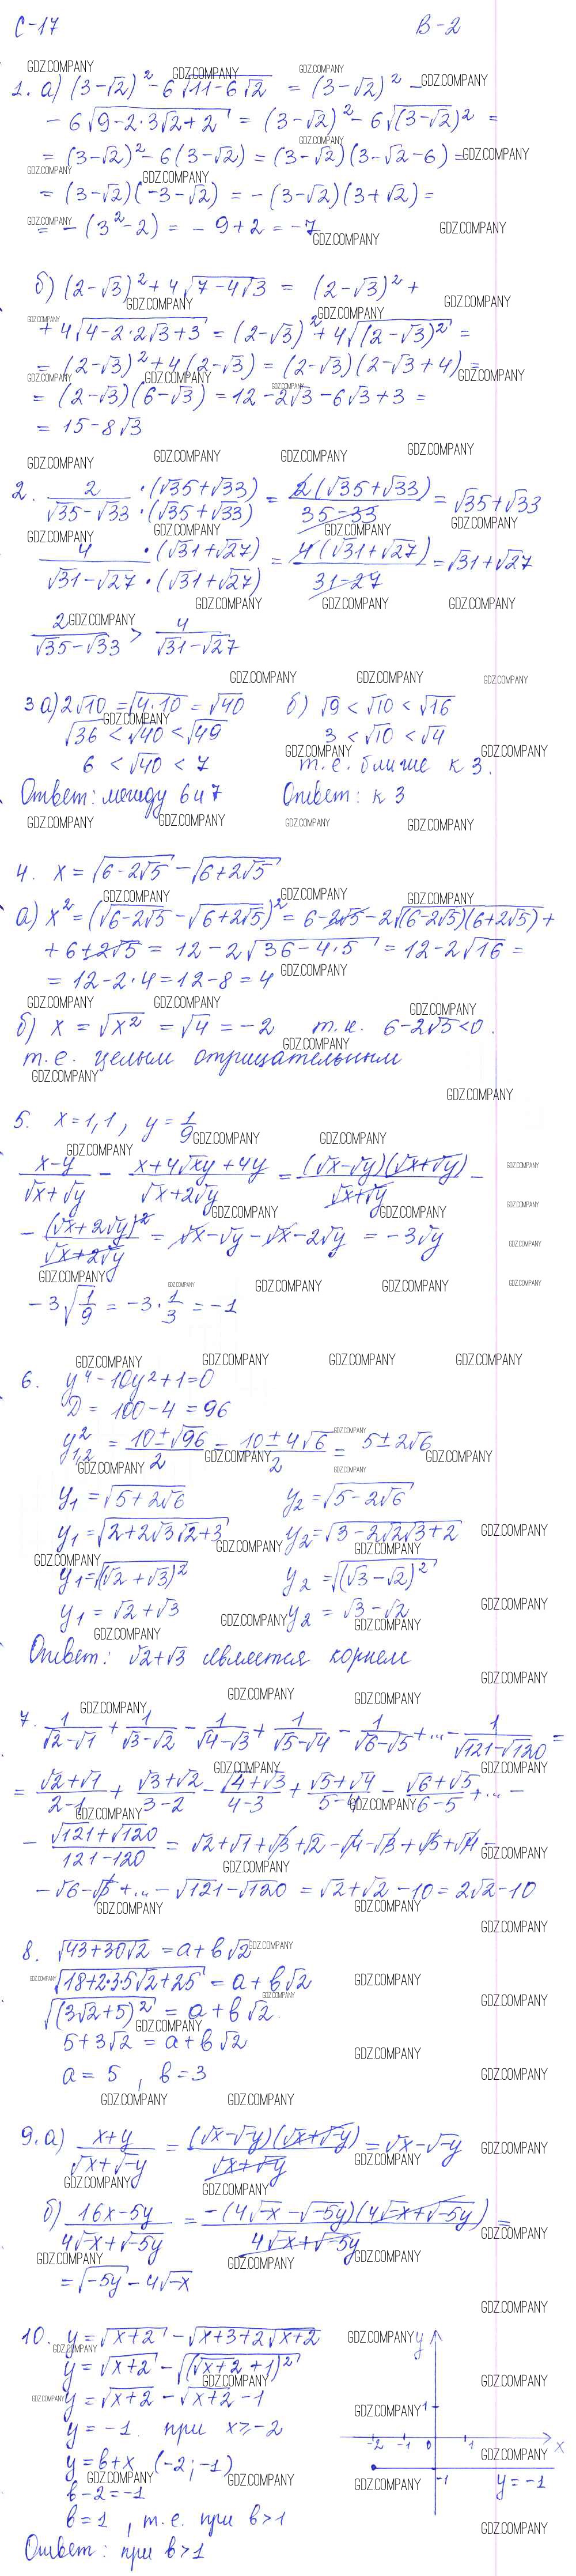 С-17 В-2
1. а) (3-√2)² - 6√(11-6√2) = (3-√2)² -
- 6√(9-2·3√2+2) = (3-√2)² - 6√(3-√2)² =
= (3-√2)² - 6(3-√2) = (3-√2)(3-√2-6) =
= (3-√2)(-3-√2) = -(3-√2)(3+√2) =
= -(3²-2) = -9+2 = -7
б) (2-√3)² + 4√(7-4√3) = (2-√3)² +
+ 4√(4-2·2√3+3) = (2-√3)² + 4√((2-√3)²) =
= (2-√3)² + 4(2-√3) = (2-√3)(2-√3+4) =
= (2-√3)(6-√3) = 12-2√3-6√3+3 =
= 15-8√3
2. 2/(√35-√33) ·(√35+√33)/·(√35+√33) = 2(√35+√33)/(35-33) = √35+√33
4/(√31-√27) ·(√31+√27)/·(√31+√27) = 4(√31+√27)/(31-27) = √31+√27
2/(√35-√33) > 4/(√31-√27)
3 а) 2√10 = √(4·10) = √40 б) √9 < √10 < √16
√36 < √40 < √49 3 < √10 < √4
6 < √40 < 7 т.е. ближе к 3.
Ответ: между 6 и 7 Ответ: к 3
4. x = √(6-2√5) - √(6+2√5)
а) x² = (√(6-2√5) - √(6+2√5))² = 6-2√5-2√((6-2√5)(6+2√5)) +
+ 6+2√5 = 12-2√(36-4·5) = 12-2√16 =
= 12-2·4 = 12-8 = 4
б) x = √x² = √4 = -2 т.к. 6-2√5<0.
т.е. целым отрицательным
5. x=1,1, y=1/9
(x-y)/(√x+√y) - (x+4√xy+4y)/(√x+2√y) = (√x-√y)(√x+√y)/(√x+√y) -
- (√x+2√y)²/(√x+2√y) = √x-√y-√x-2√y = -3√y
-3√(1/9) = -3·1/3 = -1
6. y⁴-10y²+1=0
D = 100-4 = 96
y²₁,₂ = (10±√96)/2 = (10±4√6)/2 = 5±2√6
y₁ = √(5+2√6) y₂ = √(5-2√6)
y₁ = √(2+2√3√2+3) y₂ = √(3-2√2√3+2)
y₁ = √((√2+√3)²) y₂ = √((√3-√2)²)
y₁ = √2+√3 y₂ = √3-√2
Ответ: √2+√3 является корнем
7. 1/(√2-√1) + 1/(√3-√2) - 1/(√4-√3) + 1/(√5-√4) - 1/(√6-√5) +...- 1/(√121-√120) =
= (√2+√1)/(2-1) + (√3+√2)/(3-2) - (√4+√3)/(4-3) + (√5+√4)/(5-4) - (√6+√5)/(6-5) +...-
- (√121+√120)/(121-120) = √2+√1+√3+√2-√4-√3+√5+√4-
-√6-√5+...-√121-√120 = √2+√2-10 = 2√2-10
8. √(43+30√2) = a+b√2
√(18+2·3·5√2+25) = a+b√2
√((3√2+5)²) = a+b√2.
5+3√2 = a+b√2
a = 5, b = 3
9. а) (x+y)/(√x+√-y) = (√x-√-y)(√x+√-y)/(√x+√-y) = √x-√-y
б) (16x-5y)/(4√-x+√-5y) = -(4√-x-√-5y)(4√-x+√-5y)/(4√-x+√-5y) =
= √-5y - 4√-x
10. y = √(x+2) - √(x+3+2√(x+2))
y = √(x+2) - √((√(x+2)+1)²)
y = √(x+2) - √(x+2) - 1
y = -1 при x≥-2
y = b+x (-2;-1)
b-2=-1
b=1, т.е. при b>1
Ответ: при b>1
y
1
-2 -1 0 1 x
-1 y=-1
GDZ.COMPANY